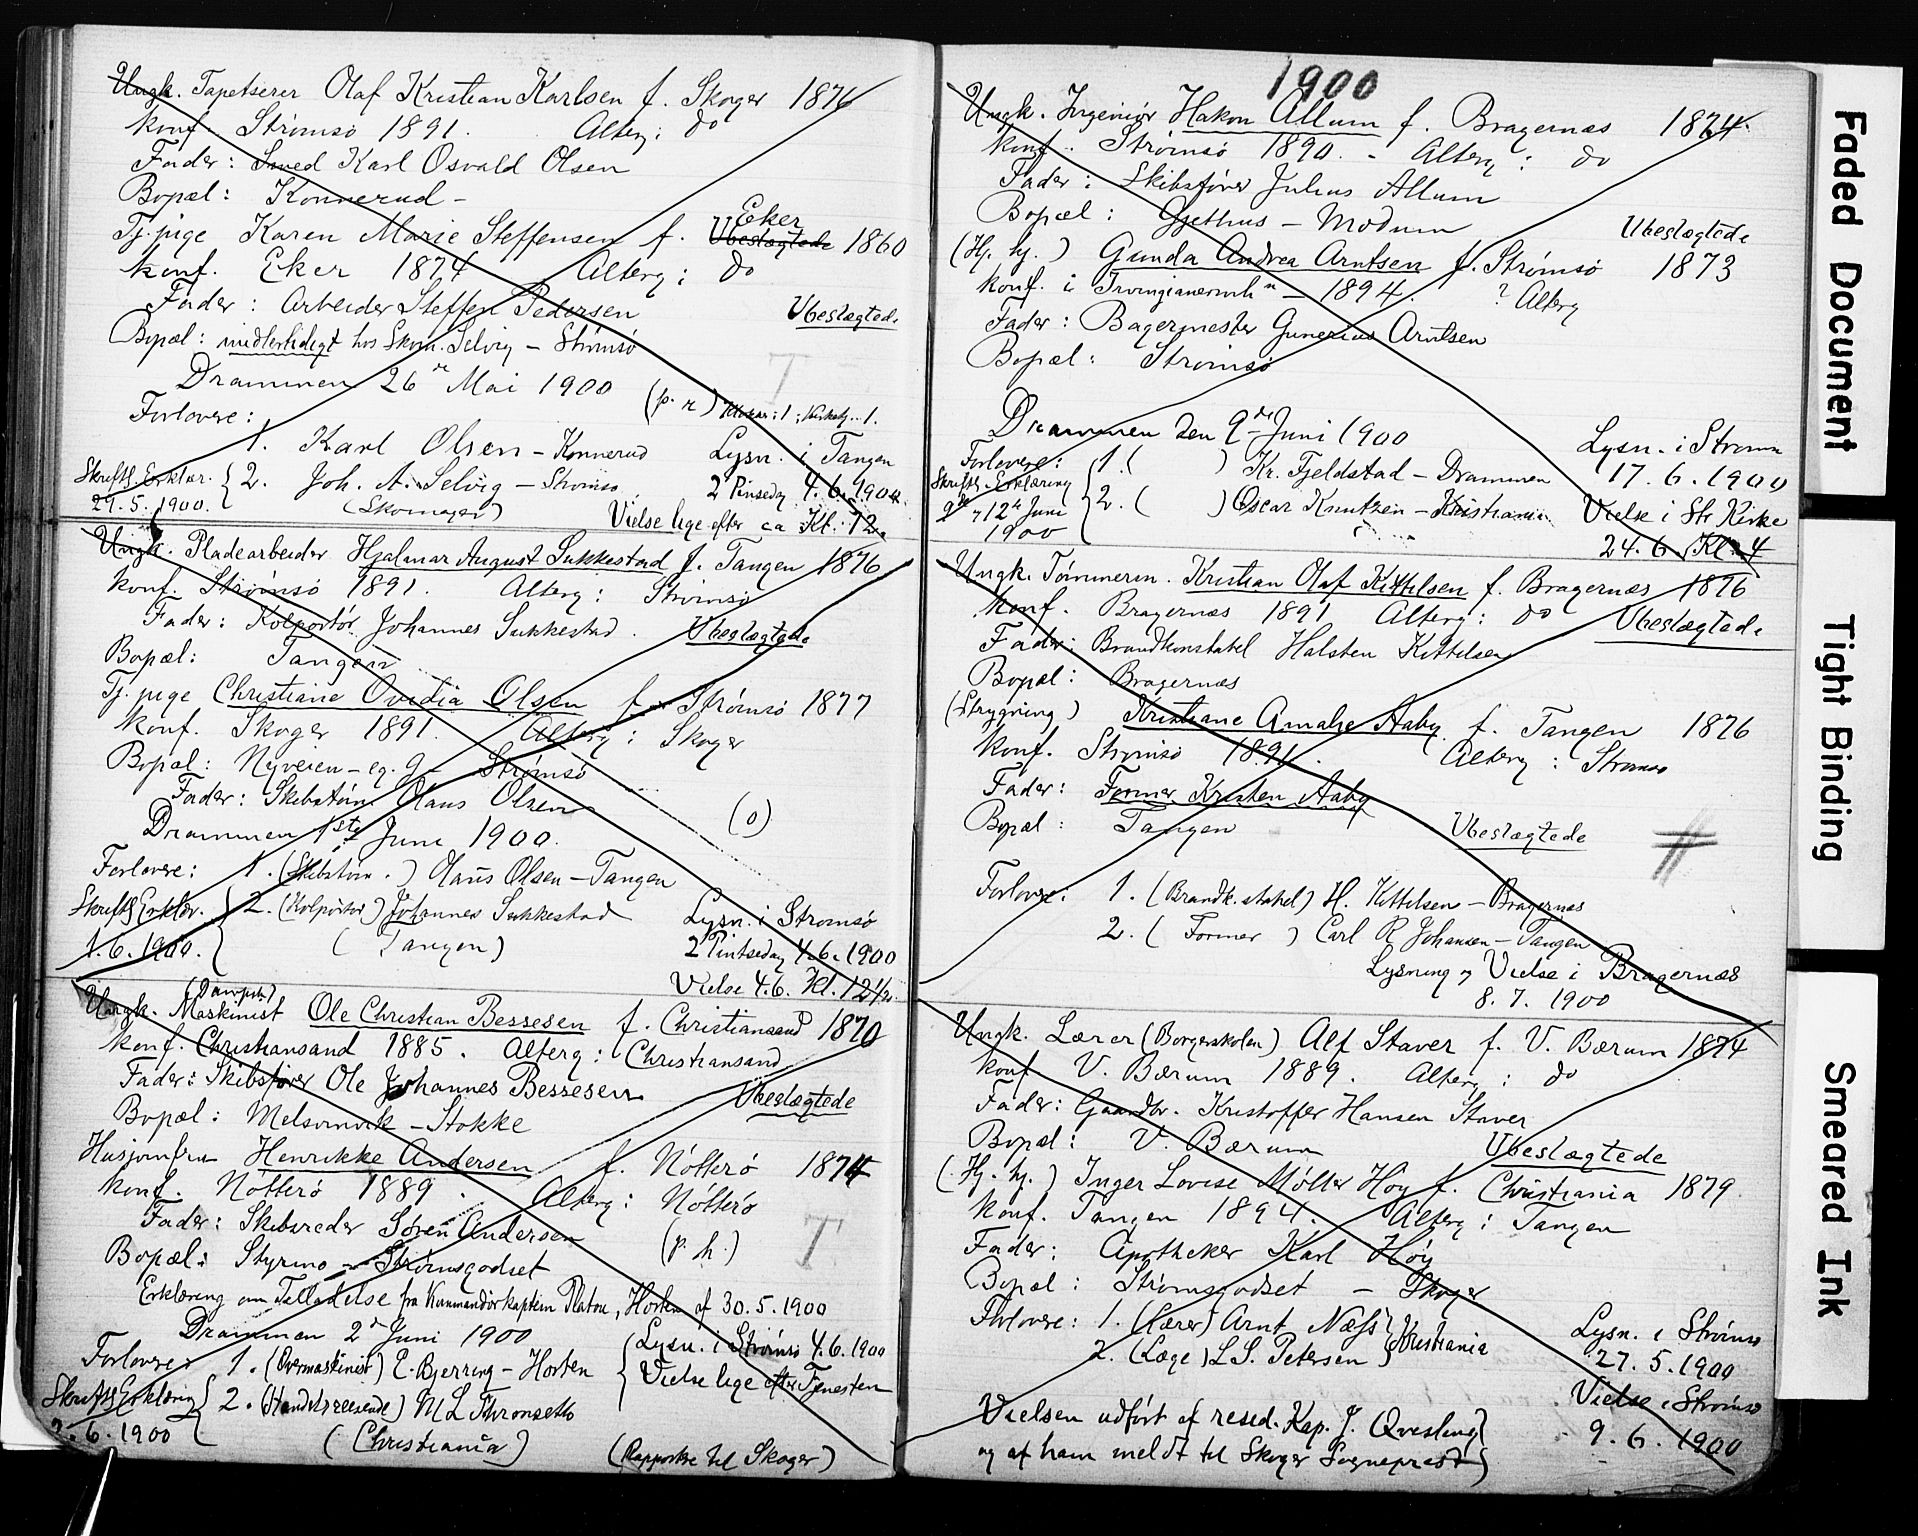 Ungk. Tapetserer Olaf Kristian Karlsen f. Skoger 1876
konf. Strømsø 1891. Alterg: do
Fader: Smed Karl Osvald Olsen
Bopæl: Konnerud -
Eker
Tj. pige Karen Marie Steffensen f. Ubeslægtede 1860
konf. Eker 1874 Alterg: do
Fader: Arbeider Steffen Pedersen
Ubeslægtede
Bopæl: midlertidigt hos Skom. Selvig - Strømsø
T
Drammen 26 Mai 1900
(p. r)
Forlovere:
1. Karl Olsen - Konnerud Lysn. i Tangen
Skriftl. Erklær. { 2. Joh. A. Selvig - Strømsø 2 Pinsedag 4.6.1900.
29.5.1900. (Skomager) Vielse lige efter ca Kl. 12.
Ungk. Pladearbeider Hjalmar August Sukkestad f. Tangen 1876
konf. Strømsø 1891. Alterg: Strømsø
Fader: Kolportør Johannes Sukkestad. Ubeslægtede
Bopæl: Tangen
Tj. pige Christiane Ovidia Olsen f. Strømsø 1877
konf. Skoger 1891. Alterg: Skoger
Bopæl: Nyveien - eg. g - Strømsø
Fader: Skibstøm. Olaus Olsen
(o)
Drammen 1ste Juni 1900.
Forlovere: 1. (Skibstøm.) Olaus Olsen - Tangen
Skriftl. Erklær. } 2. (Kolportør) Johannes Sukkestad Lysn. i Strømsø
1.6.1900. (Tangen) 2 Pintsedag 4.6.1900
Vielse 4.6. Kl. 12½.
(Dampsk.)
Ungk. Maskinist Ole Christian Bessesen f. Christiansand 1870
konf. Christiansand 1885. Alterg: Christiansand
Fader: Skibsfører Ole Johannes Bessesen
Ubeslægtede
Bopæl: Melsomvik - Stokke
Husjomfru Henrikke Andersen f. Nötterö 1874
konf. Nötterö 1889. Alterg: Nötterö
Fader: Skibsreder Sören Andersen
(p. h.) T
Bopæl: Styrmo - Strømsgodset
Erklæring om Tilladelse fra Kommandørkaptein Platou, Horten af 30.5.1900
Drammen 2 Juni 1900 Lysn. i Strømsø 4.6.1900
Forlovere: 1. (Overmaskinist) E. Bjerring - Horten Vielse lige efter Tjenesten
Skriftl. Erklæring } 2. (Handelsreisende) M L Thronsett
2.6.1900 (Christiania) (Rapportere til Skoger)
1900
Ungk. Ingeniør Hakon Allum f. Bragernæs 1874.
konf. Strømsø 1890. - Alterg: do
Fader: Skibsfører Julius Allum
Bopæl: Gjethus - Modum Ubeslægtede
(Hj. hj.) Gunda Andrea Arntsen f. Strømsø 1873
konf. i - 1894. ? Altberg
Fader: Bagermester Gunerius Arntsen
Bopæl: Strømsø
Drammen den 9de Juni 1900 Lysn. i Strømsø
Forlovere: 1. ( ) Kr. Fjeldstad - Drammen 17.6.1900
Skriftl. Erklæring 2. ( ) Oscar Knutzen - Kristiania Vielse i Str. Kirke
9de 12te Juni
1900 24.6. Kl. 4
Ungk. Tømmerm. Kristian Olaf Kittelsen f. Bragernæs 1876
konf. Bragernæs 1891 Altberg: do Ubeslægtede
Fader: Brandkonstabel Halsten Kittelsen
Bopæl: Bragernæs
(Strygning) Kristiane Amalie Aaby f. Tangen 1876
konf. Strømsø 1891. Altberg: Strømsø
Fader: Former Kristen Aaby
Bopæl: Tangen Ubeslægtede #
Forlovere: 1. (Brandk.stabel) H. Kittelsen - Bragernæs
2. (Former) Carl R Johansen - Tangen
Lysning og Vielse i Bragernæs
8.7.1900
Ungk. Lærer (Borgerskolen) Alf Staver f. V. Bærum 1874
konf V. Bærum 1889. Altberg: do
Fader: Gaardbr. Kristoffer Hansen Staver
Bopæl: V. Bærum Ubeslægtede
(Hj. hj.) Inger Lovise Møller Höy f. Christiania 1879.
konf. Tangen 1894. Altberg: Tangen
Fader: Apotheker Karl Höy
Bopæl: Strømsgodset - Skoger
Forlovere: 1. (Lærer) Arnt Næss } Kristiania Lysn. i Strømsø
2. (Læge) L S. Petersen 27.5.1900
Vielse i Strømsø
Vielsen udført af resid. Kap. J. Qvisling 9.6.1900
og af ham meldt til Skoger Sogneprest
Faded Document
Tight Binding
Smeared Ink